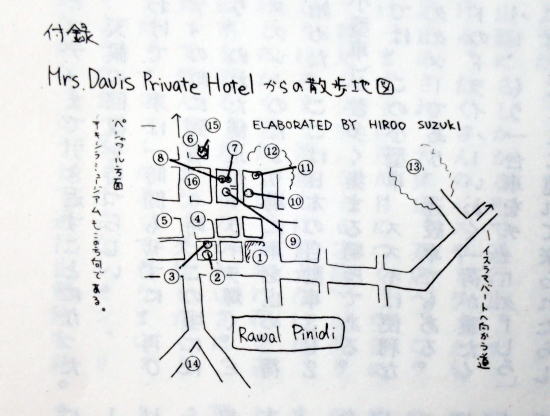 付録
Mrs. Davis Private Hotel からの散歩地図
ELABORATED BY HIROO SUZUKI
ペシャワール方面
タキシラミュージアムもこの方向である。
⑥
⑮
⑦
⑧
⑫
⑪
⑬
⑯
⑩
⑤
④
⑨
①
③
②
イスラマバードへ向かう道
Rawal Pinidi
⑭